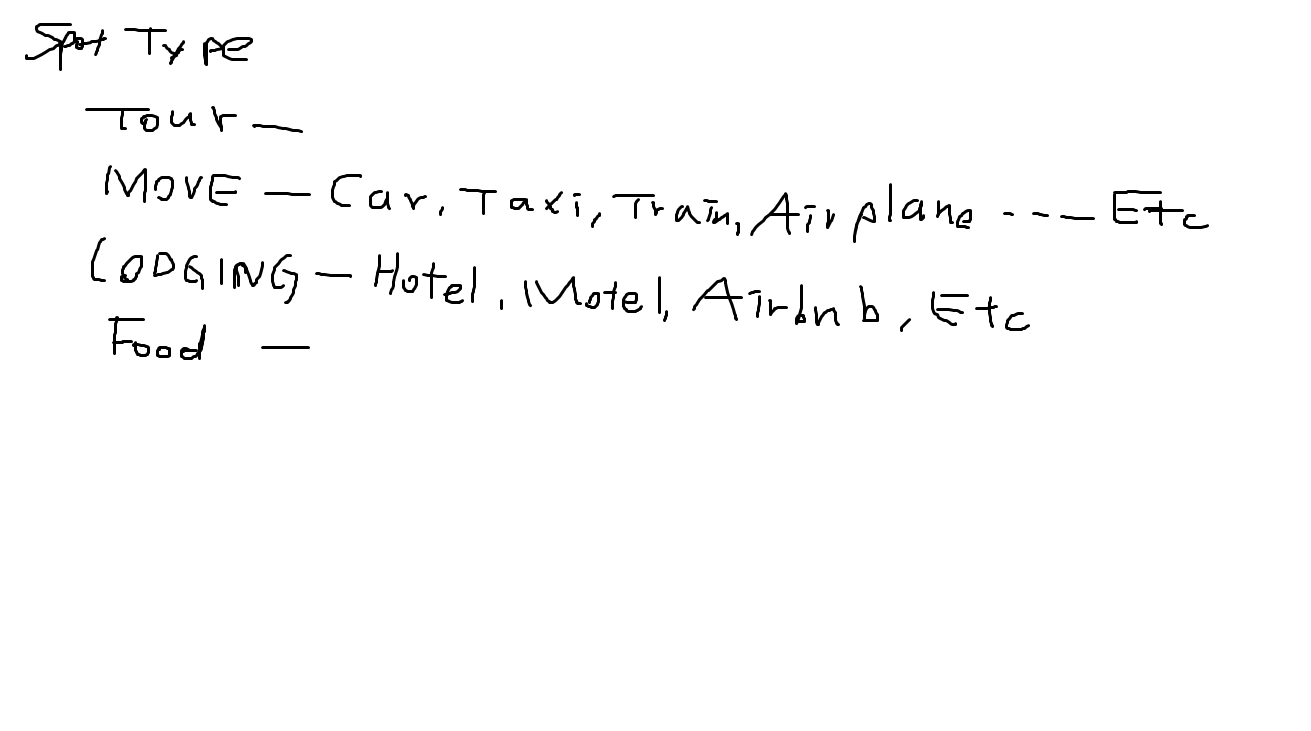 Spot Type
Tour —
MOVE — Car, Taxi, Train, Airplane ---— Etc
LODGING — Hotel, Motel, Airbnb, Etc
Food —